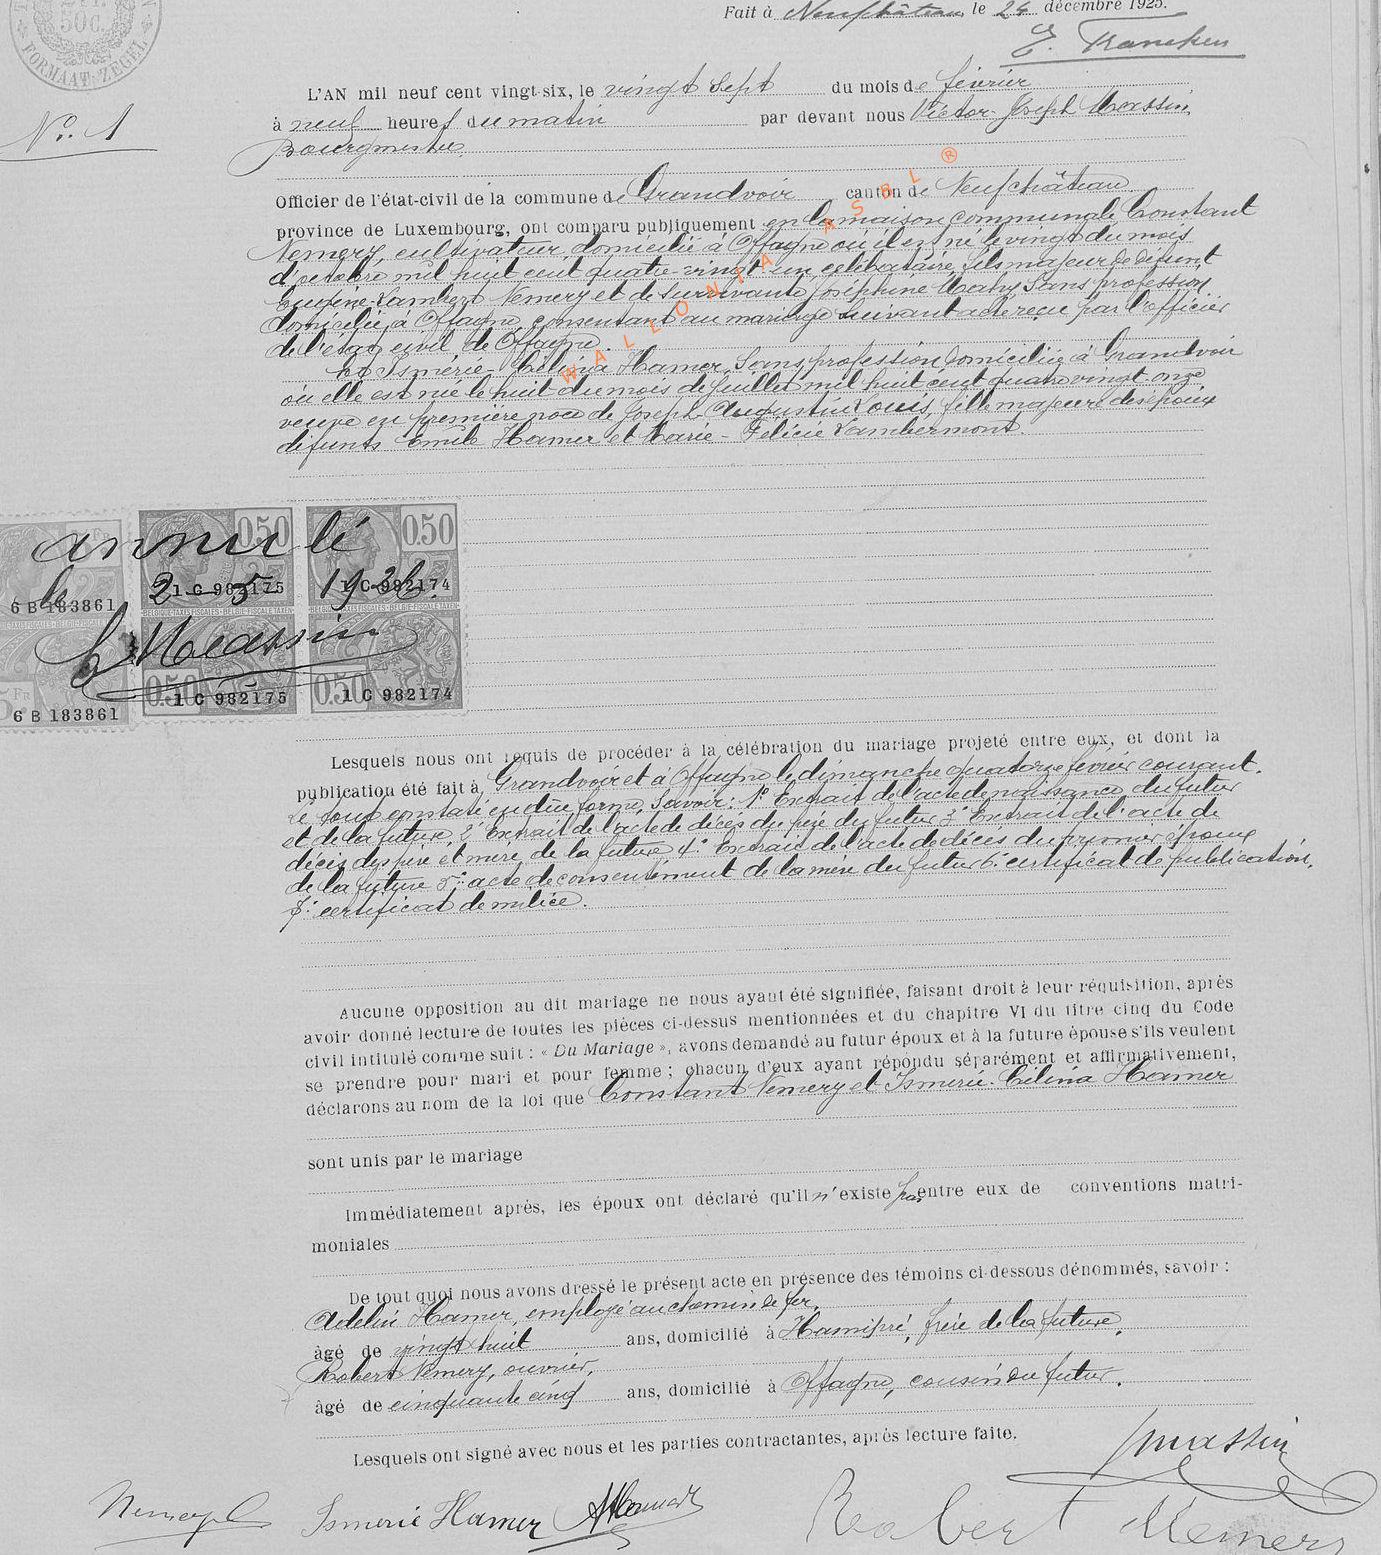 50C.
FORMAAT-ZEGEL
Fait à Neufchâteau, le 24 décembre 1925.
N° 1
L'AN mil neuf cent vingt-six, le vingt sept du mois de février
à neuf heures du matin par devant nous Victor-Joseph Massin,
Bourgmestre
Officier de l'état-civil de la commune de Grandvoir canton de Neufchâteau
province de Luxembourg, ont comparu publiquement en la maison communale Constant
Nemery, cultivateur, domicilié à Offagne où il est né le vingt du mois
d'octobre mil huit cent quatre-vingt-un, célibataire, fils majeur de défunt
Lambert Nemery et de survivante Joséphine Mahy, sans profession,
domiciliée à Offagne, consentant au mariage suivant acte reçu par l'officier
de l'état civil de Offagne.
Et Ismérie-Célina Hamer, sans profession, domiciliée à Grandvoir
où elle est née le huit du mois de juillet mil huit cent quatre vingt onze,
veuve en première noce de Joseph-Augustin Louis, fille majeure des époux
défunts Emile Hamer et Marie-Félicie Lambermont.
WALLONIA ASBL ®
0.50 0.50
annulé
le 2-5-1926.
6 B 183861 1 C 982175 1 C 982174
Massin
0.50 0.50
6 B 183861 1 C 982175 1 C 982174
Lesquels nous ont requis de procéder à la célébration du mariage projeté entre eux, et dont la
publication été fait à Grandvoir et à Offagne le dimanche quatorze février courant.
Le tout constaté en due forme, savoir: 1° Extrait de l'acte de naissance du futur
et de la future, 2° Extrait de l'acte de décès du père du futur 3° Extrait de l'acte de
décès des père et mère de la future 4° Extrait de l'acte de décès du premier époux
de la future 5° acte de consentement de la mère du futur 6° certificat de publication.
7° certificat de milice.
Aucune opposition au dit mariage ne nous ayant été signifiée, faisant droit à leur réquisition, après
avoir donné lecture de toutes les pièces ci-dessus mentionnées et du chapitre VI du titre cinq du Code
civil intitulé comme suit : « Du Mariage », avons demandé au futur époux et à la future épouse s'ils veulent
se prendre pour mari et pour femme ; chacun d'eux ayant répondu séparément et affirmativement,
déclarons au nom de la loi que Constant Nemery et Ismérie-Célina Hamer
sont unis par le mariage
Immédiatement après, les époux ont déclaré qu'il n'existe pas entre eux de conventions matri-
moniales
De tout quoi nous avons dressé le présent acte en présence des témoins ci-dessous dénommés, savoir :
Adelin Hamer, employé au chemin de fer,
âgé de vingt huit ans, domicilié à Hamipré, frère de la future,
Robert Nemery, ouvrier,
âgé de cinquante cinq ans, domicilié à Offagne, cousin du futur.
Lesquels ont signé avec nous et les parties contractantes, après lecture faite.
Massin
Nemery C Ismerie Hamer AHamer Robert Nemery